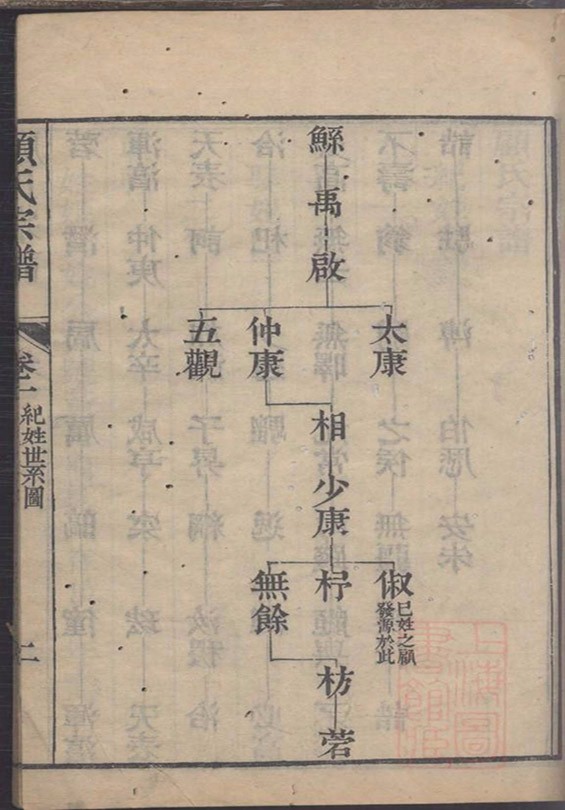 鯀
禹
啟
太康
仲康
五觀
相
少康
俶
巳姓之顧
發源於此
杼
無餘
枋
菪
顧氏宗譜
卷一
紀姓世系圖
二